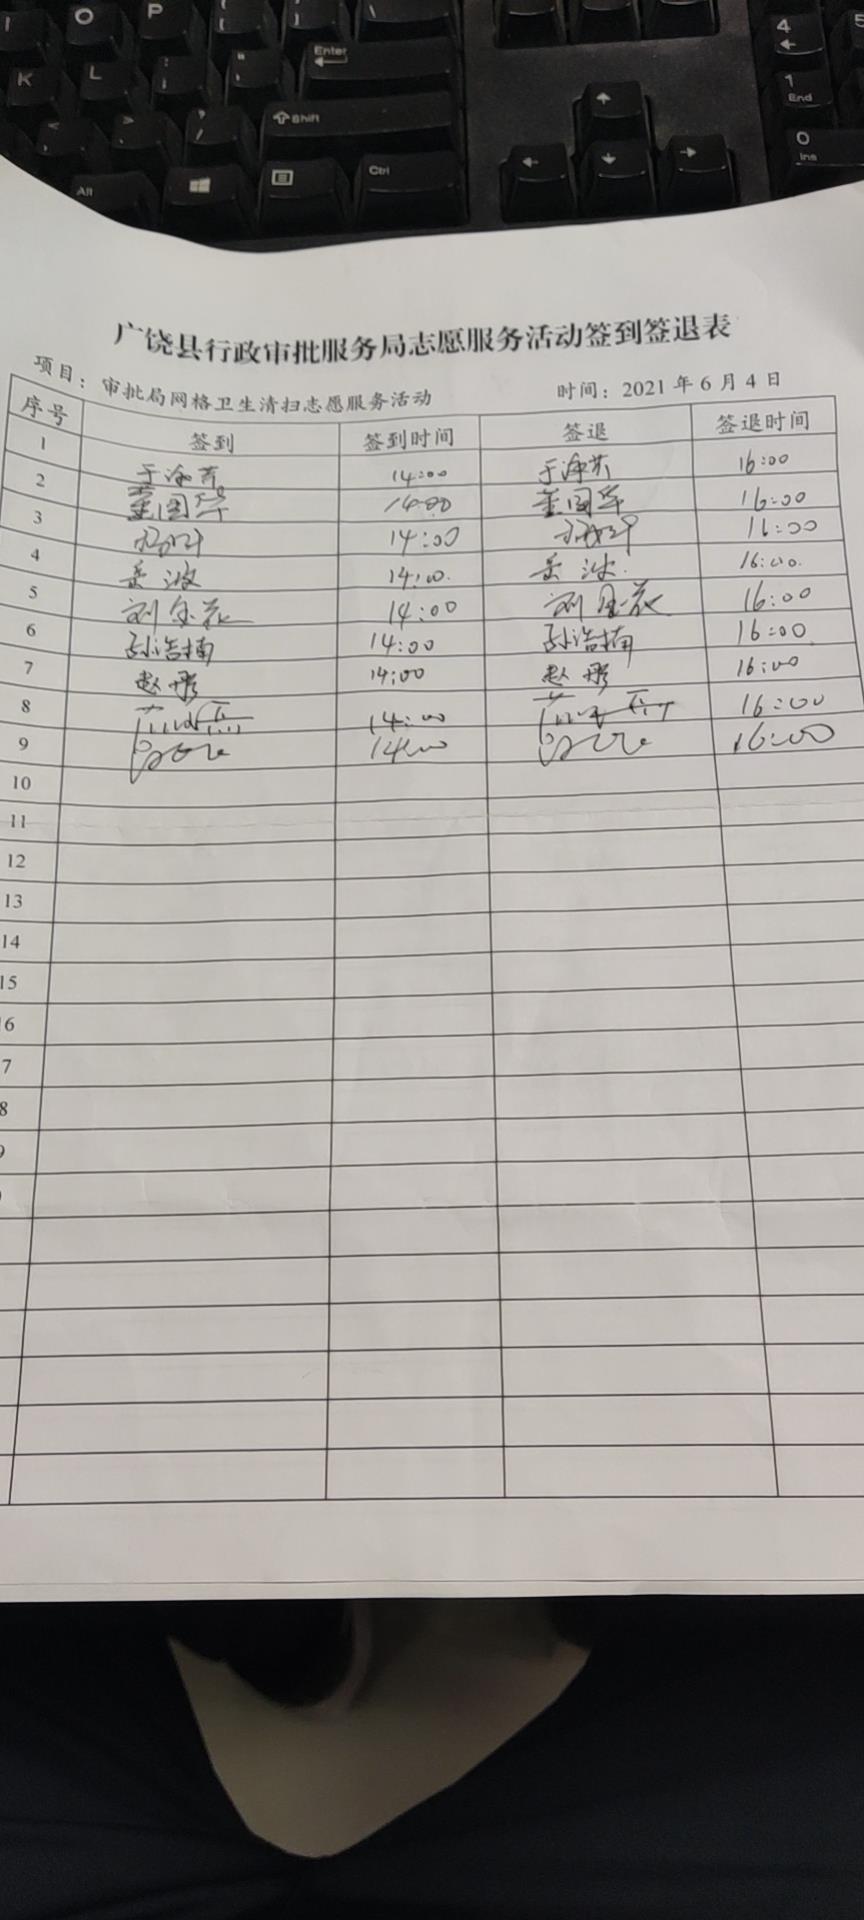 O P
Enter
K L
4
1
End
Shift
0
Ins
Alt
Ctrl
广饶县行政审批服务局志愿服务活动签到签退表
项目：审批局网格卫生清扫志愿服务活动 时间：2021年6月4日
序号 签到 签到时间 签退 签退时间
1 14:00 16:00
2 董国华 14:00 董国华 16:00
3 14:00 16:00
4 岳波 14:00. 岳波. 16:00.
5 刘金花 14:00 刘金花 16:00
6 孙浩楠 14:00 孙浩楠 16:00
7 赵彤 14:00 赵彤 16:00
8 14:00 16:00
9 14:00 16:00
10
11
12
13
14
15
16
7
8
9